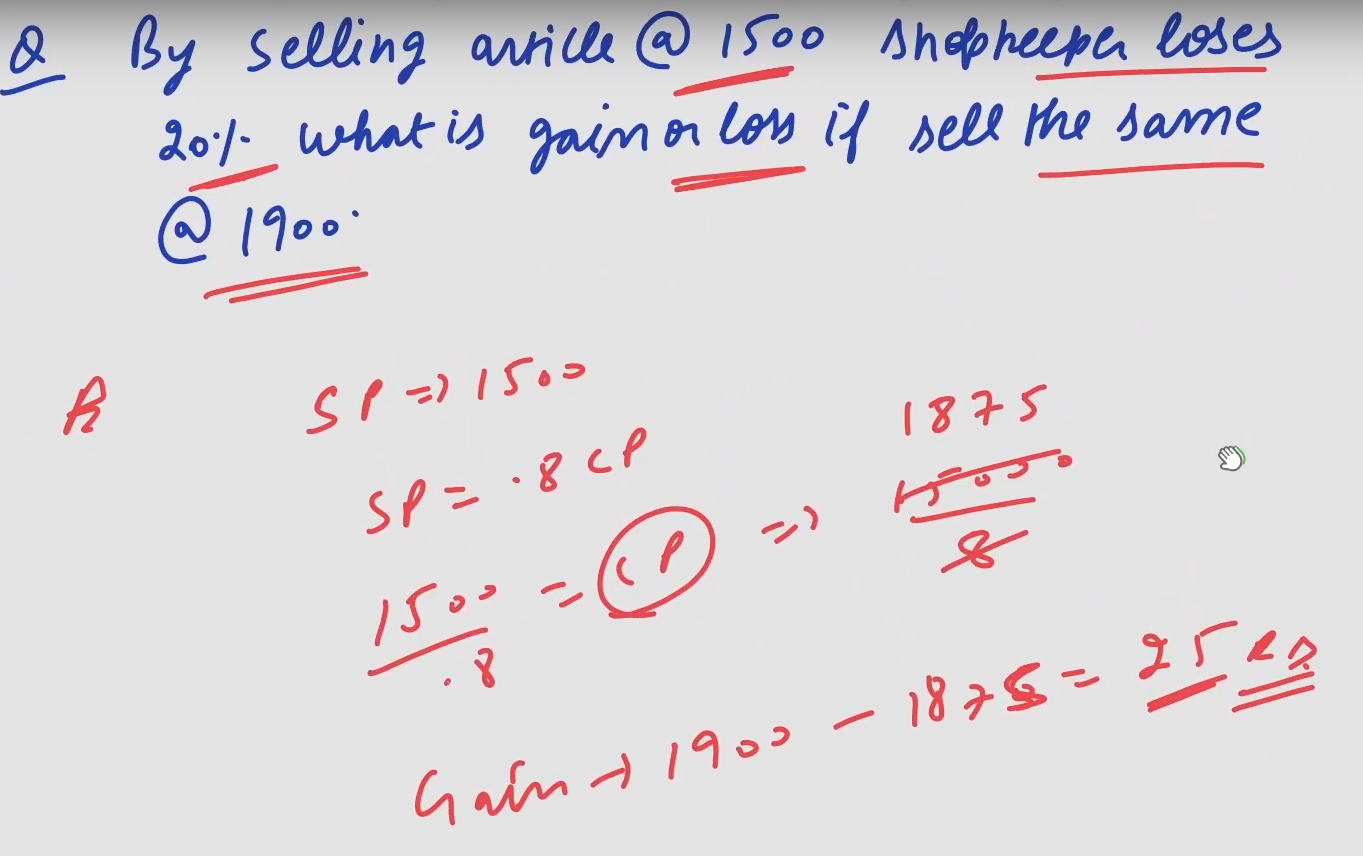 Q By selling article @ 1500 shopkeeper loses
20% what is gain or loss if sell the same
@ 1900.
A SP => 1500
SP = .8 CP
1500/.8 = CP => 15000/8 1875
Gain → 1900 - 1875 = 25 Rs